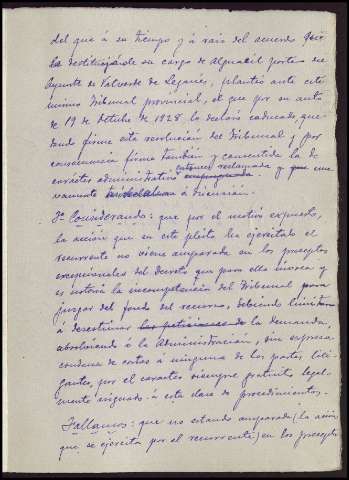 del que á su tiempo y á raiz del acuerdo que
le destituyó de su cargo de Alguacil Portero del
Ayunto de Valverde de Leganés, planteó ante este
mismo Tribunal provincial, el que por su auto
de 19 de Octubre de 1928 lo declaró caducado, que-
dando firme esta resolución del Tribunal y por
consecuencia firme también y consentida la de
carácter administrativo entonces reclamada y que nue-
vamente á discusión.
3º Considerando: que por el motivo expuesto,
la acción que en este pleito ha ejercitado el
recurrente no viene amparada en los preceptos
excepcionales del Decreto que para ello invoca y
es notoria la incompetencia del Tribunal para
juzgar del fondo del recurso, debiendo limitarse
á desestimar las peticiones de la demanda,
absolviendo á la Administración, sin expresa
condena de costas á ninguna de las partes liti-
gantes, por el carácter siempre gratuito legal-
mente asignado á esta clase de procedimientos.
Fallamos: que no estando amparada (la acción
que se ejercita por el recurrente) en los preceptos